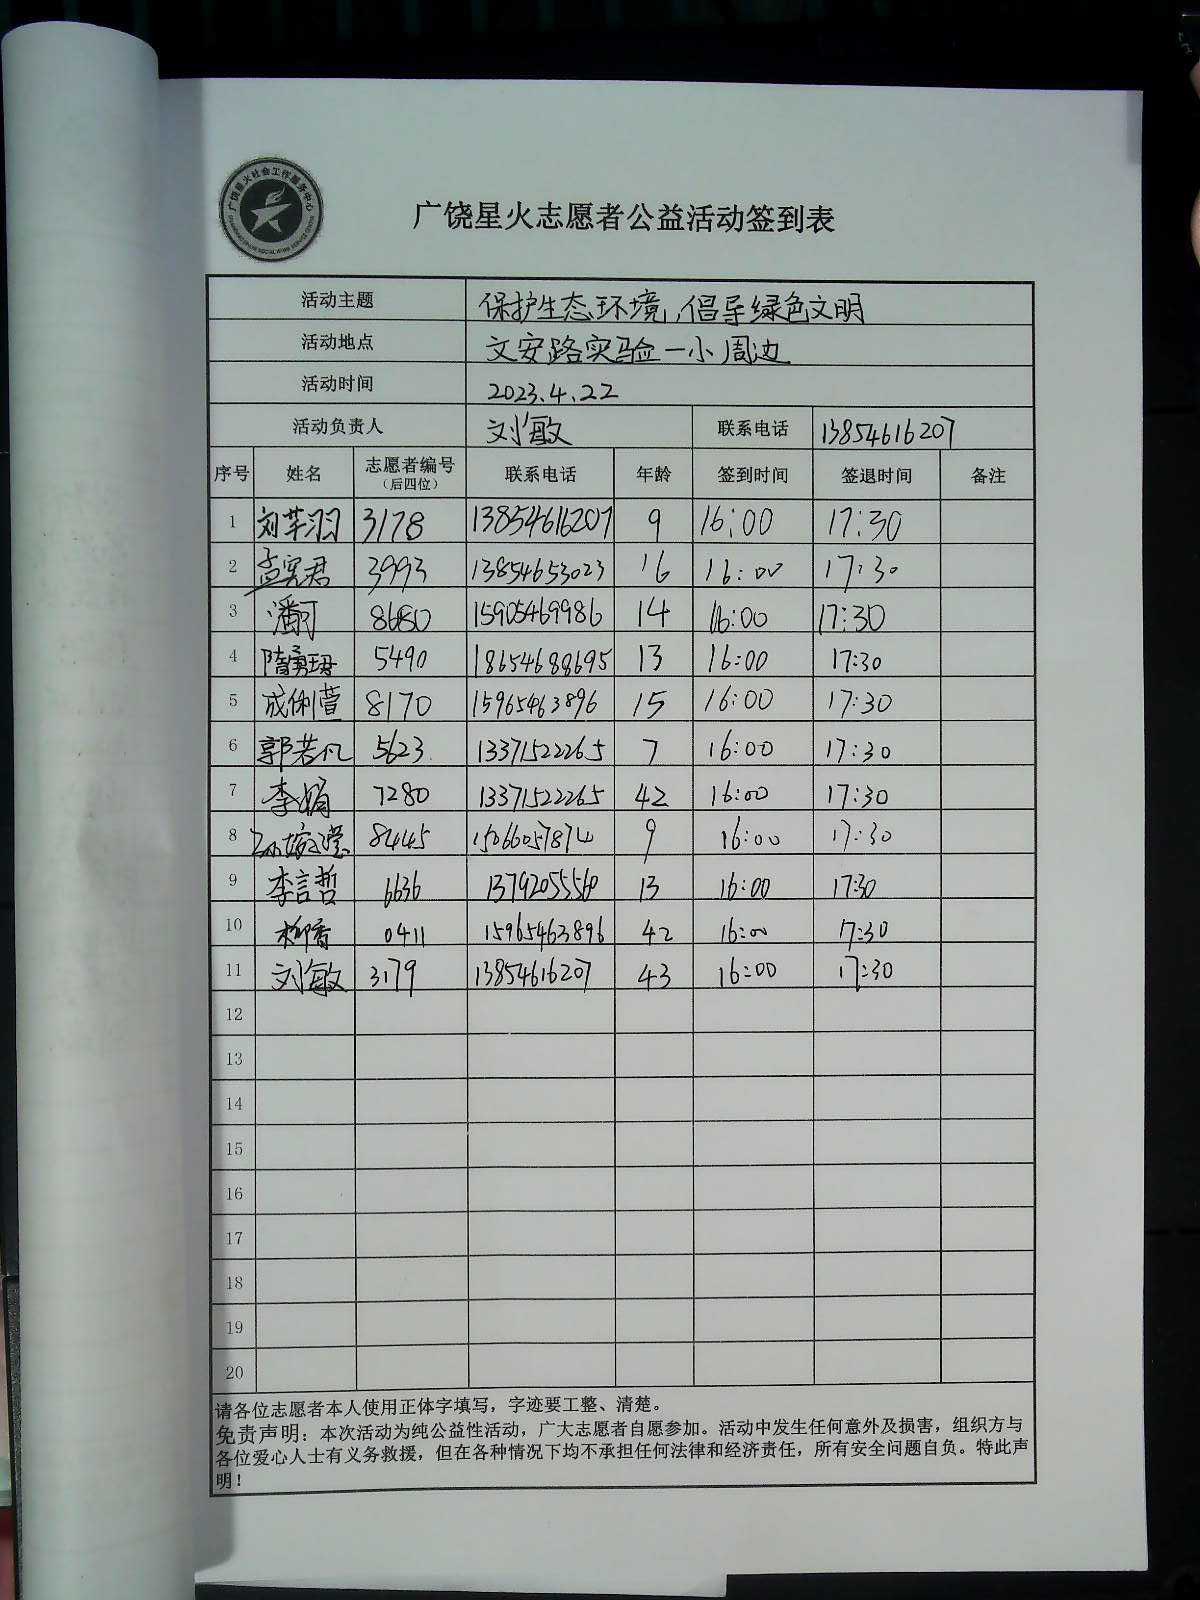 广饶星火社会工作服务中心
广饶星火志愿者公益活动签到表
活动主题 保护生态环境,倡导绿色文明
活动地点 文安路实验一小周边
活动时间 2023.4.22
活动负责人 刘敏 联系电话 13854616207
序号 姓名 志愿者编号(后四位) 联系电话 年龄 签到时间 签退时间 备注
1 刘芊羽 3178 13854616207 9 16:00 17:30
2 孟宪君 3993 13854653023 16 16:00 17:30
3 潘可 8680 15905469986 14 16:00 17:30
4 隋勇珺 5490 18654688695 13 16:00 17:30
5 成俐萱 8170 15965463896 15 16:00 17:30
6 郭若凡 5623 13371522265 7 16:00 17:30
7 李娟 7280 13371522265 42 16:00 17:30
8 8445 15066057874 9 16:00 17:30
9 李言哲 6636 13792055560 13 16:00 17:30
10 柳香 0411 15965463896 42 16:00 17:30
11 刘敏 3179 13854616207 43 16:00 17:30
12
13
14
15
16
17
18
19
20
请各位志愿者本人使用正体字填写，字迹要工整、清楚。
免责声明：本次活动为纯公益性活动，广大志愿者自愿参加。活动中发生任何意外及损害，组织方与
各位爱心人士有义务救援，但在各种情况下均不承担任何法律和经济责任，所有安全问题自负。特此声
明！